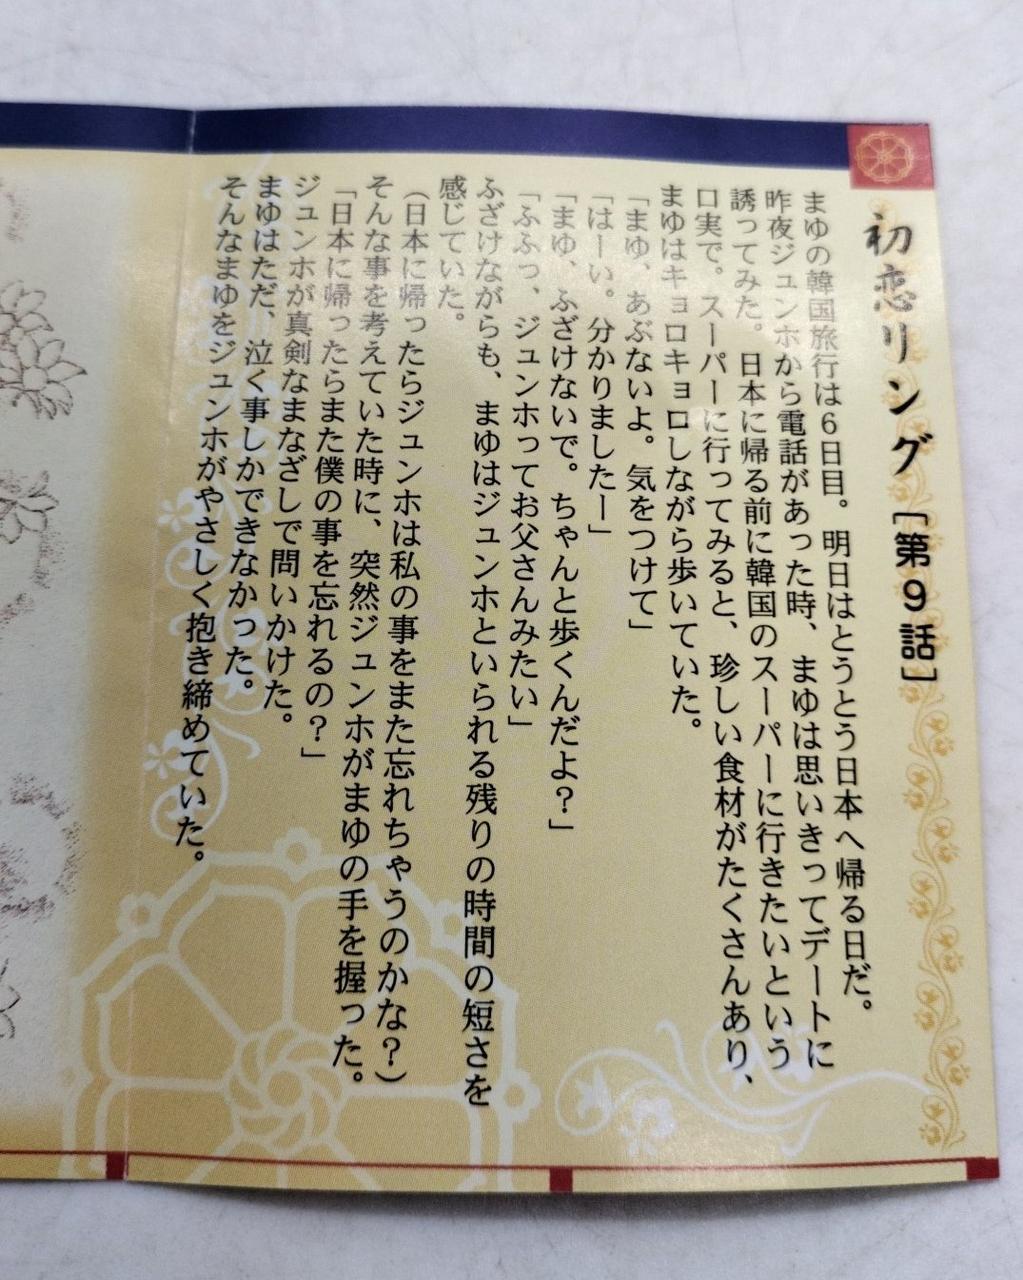 初恋リング［第９話］
まゆの韓国旅行は６日目。明日はとうとう日本へ帰る日だ。
昨夜ジュンホから電話があった時、まゆは思いきってデートに
誘ってみた。日本に帰る前に韓国のスーパーに行きたいという
口実で。スーパーに行ってみると、珍しい食材がたくさんあり、
まゆはキョロキョロしながら歩いていた。
「まゆ、あぶないよ。気をつけて」
「はーい。分かりましたー」
「まゆ、ふざけないで。ちゃんと歩くんだよ？」
「ふふっ、ジュンホってお父さんみたい」
ふざけながらも、まゆはジュンホといられる残りの時間の短さを
感じていた。
（日本に帰ったらジュンホは私の事をまた忘れちゃうのかな？）
そんな事を考えていた時に、突然ジュンホがまゆの手を握った。
「日本に帰ったらまた僕の事を忘れるの？」
ジュンホが真剣なまなざしで問いかけた。
まゆはただ、泣く事しかできなかった。
そんなまゆをジュンホがやさしく抱き締めていた。